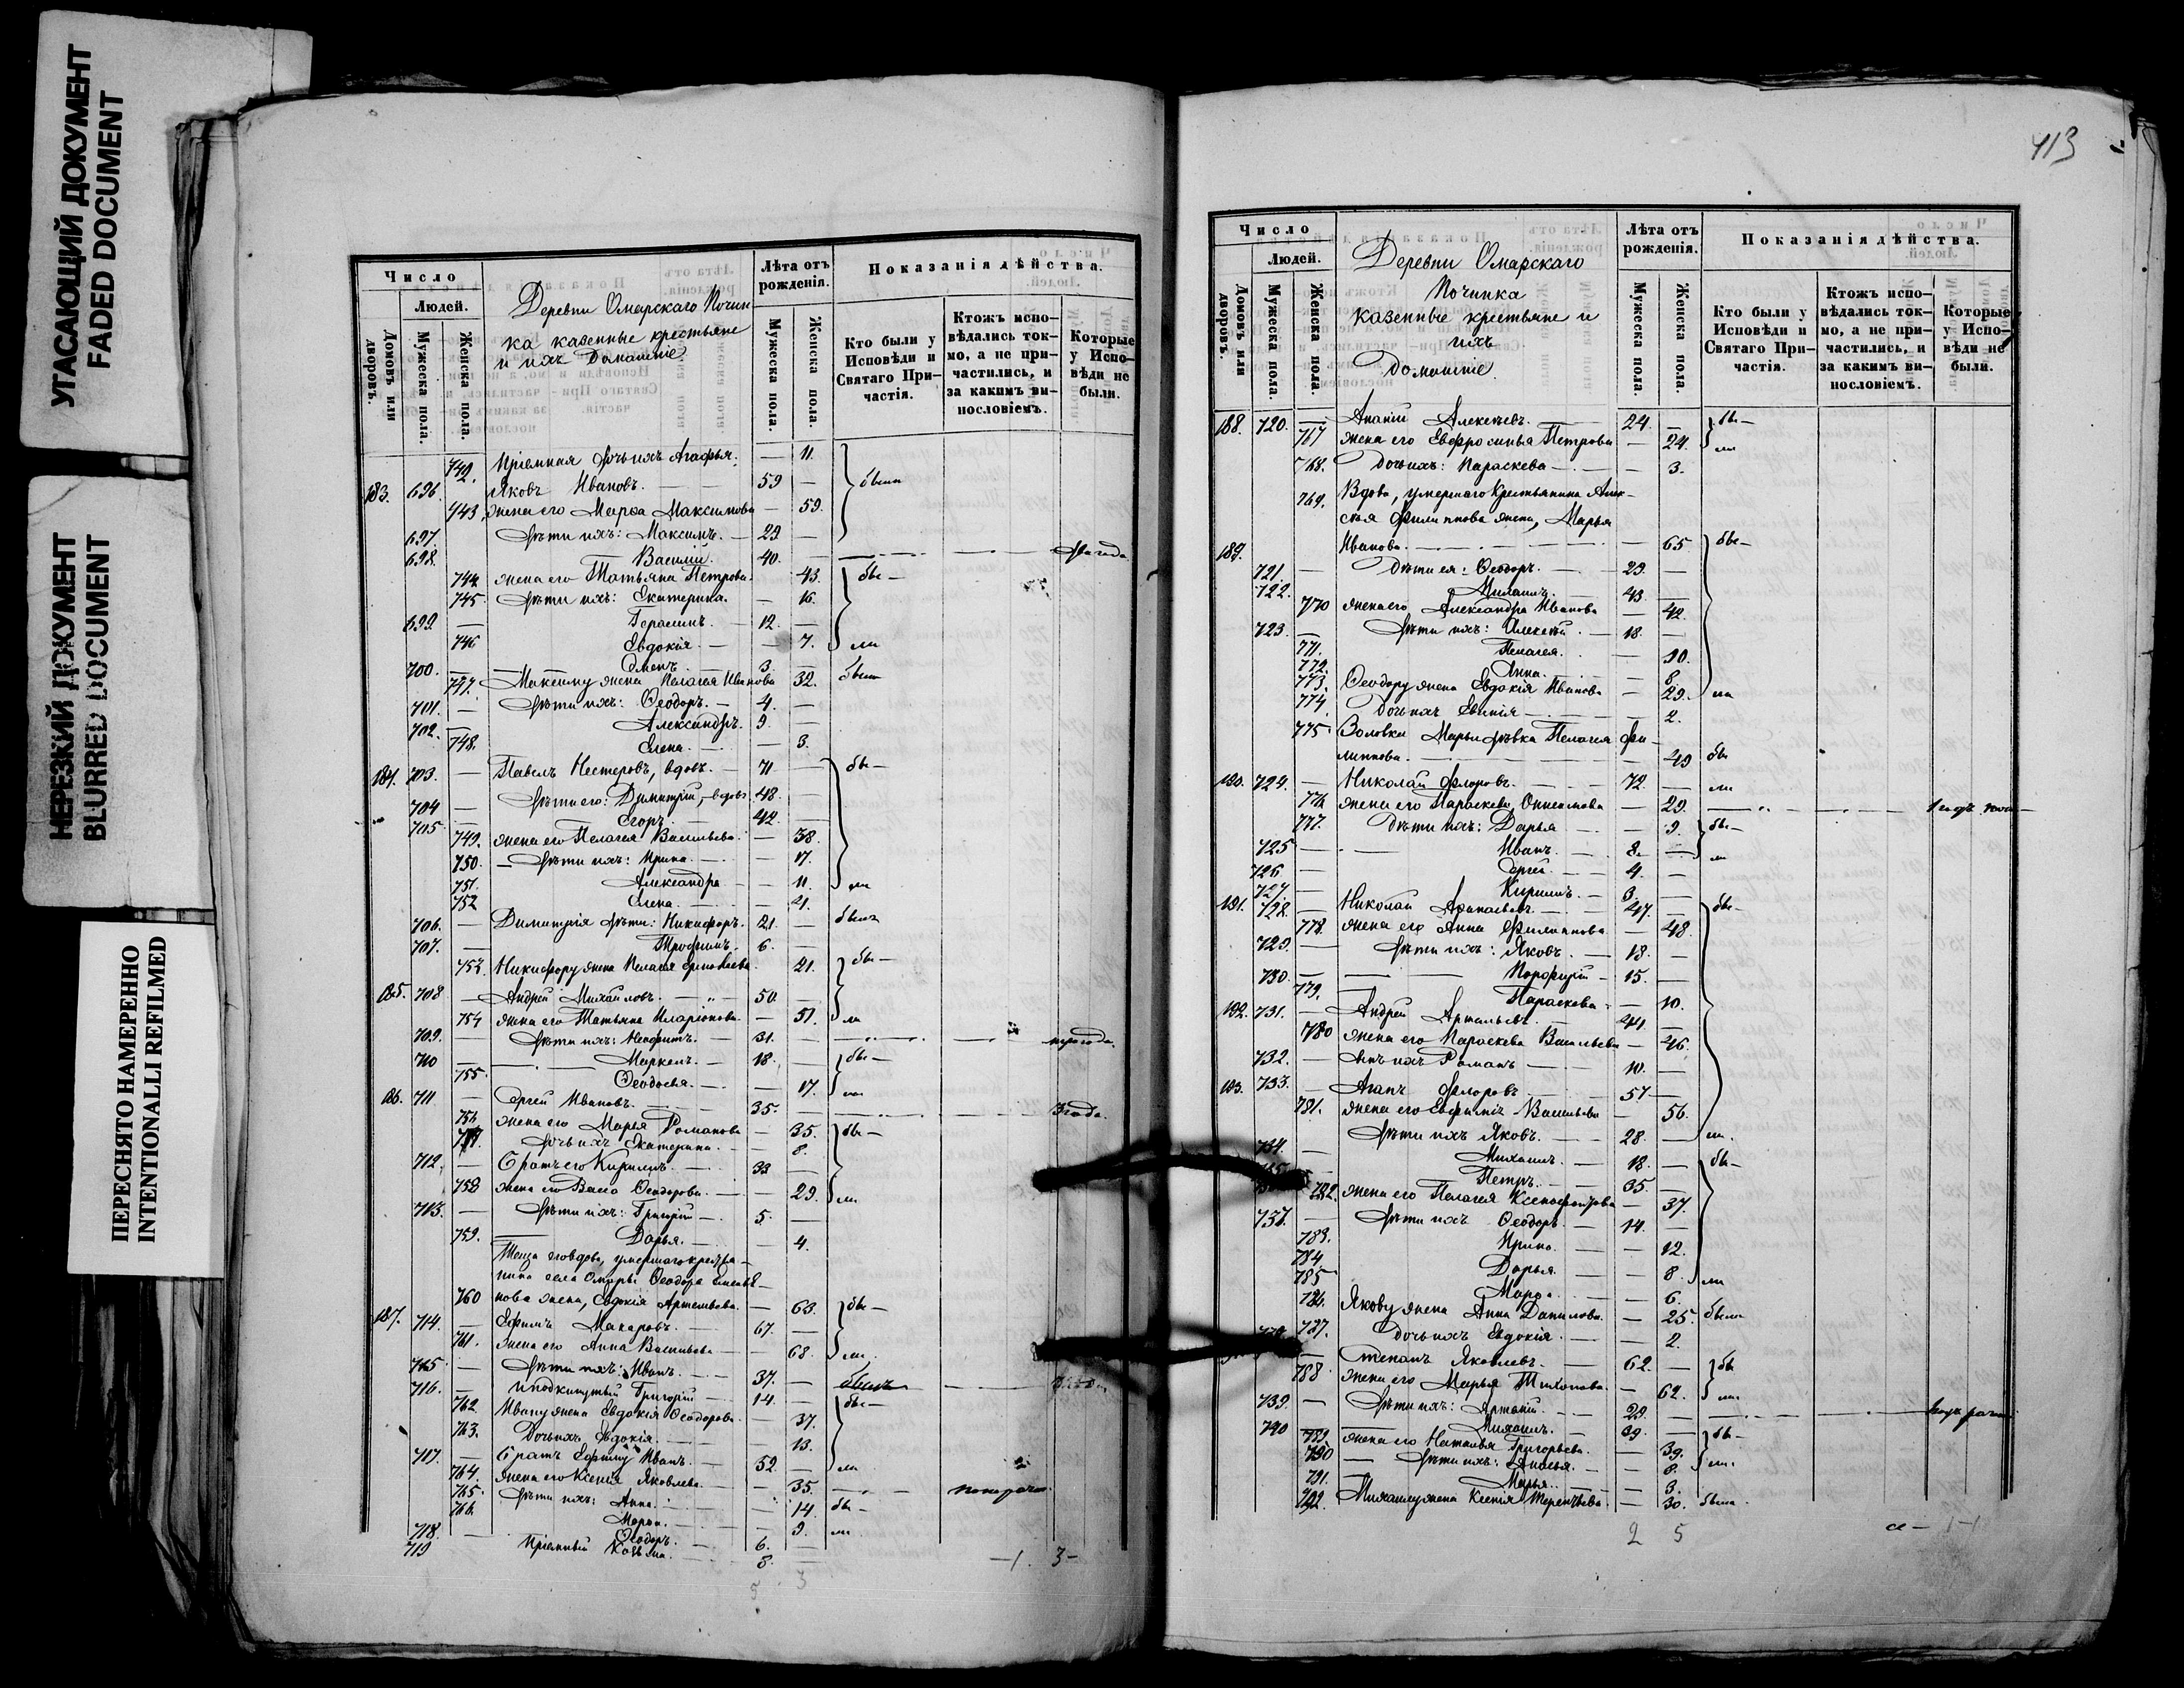 УГАСАЮЩИЙ ДОКУМЕНТ
FADED DOCUMENT
НЕРЕЗКИЙ ДОКУМЕНТ
BLURRED DOCUMENT
ПЕРЕСНЯТО НАМЕРЕННО
INTENTIONALLI REFILMED
Число
Людей.
Домовъ или дворовъ.
Мужеска пола.
Женска пола.
Деревни Омарскаго Почин
ка казенные крестьяне
и ихъ домашніе
Лѣта отъ рожденія.
Мужеска пола.
Женска пола.
Показанія дѣйства.
Кто были у Исповѣди и Святаго При-частія.
Ктожъ испо-вѣдались ток-мо, а не при-частились, и за какимъ ви-нословіемъ.
Которые у Испо-вѣди не были.
742. Пріемная дочь ихъ Агафья. — 11.
183. 696. Яковъ Ивановъ. 59 — были
743. жена его Марѳа Максимова — 59.
697. дѣти ихъ: Максимъ. 29 —
698. Василій. 40. — два года
744. жена его Татьяна Петрова. 43. бы —
745. дѣти ихъ: Екатерина. — 16.
699. — Герасимъ. — 12. —
746 Евдокія. — 7. ли
700. — 3. —
747. Максиму жена Пелагея Иванова 32. были
701. — дѣти ихъ: Ѳеодоръ. — 4. —
702. — Александръ. 9. —
748. Елена. — 3.
184. 703. — Павелъ Нестеровъ, вдовъ. — 71 — бы —
704 — дѣти его: Димитрій, — вдовъ 48. —
705. Егоръ. — 42. —
749. жена его Пелагея Васильева. — 38.
750. — дѣти ихъ: Ирина. — 17.
751. Александра — 11. ли
752 Елена. — 4.
706. — Димитрія дѣти: Никифоръ. 21. — былъ
707. — Трофимъ. 6. —
753. Никифору жена Пелагея 21. бы —
185. 708 — Андрей Михайловъ. 50. —
754 жена его Татьяна Иларіонова. — 51. ли
709. — дѣти ихъ: Неофитъ. — 31. — три года.
710 — Маркелъ. — 18. — бы —
755. Ѳеодосья. — 17. ли
186. 711 — Сергей Ивановъ. 35. — 3 года.
756. жена его Марья Романова — 35. бы —
757. дочь ихъ Екатерина. — 8.
712. — Братъ его Кирилъ. 33 —
758 жена его Васса Ѳеодорова. — 29. ли
713. — дѣти ихъ: Григорій — 5. —
759. Дарья. — 4.
Теща его вдова, умершаго крестья-
нина села Омары Ѳеодора
760 нова жена, Евдокія Артемьева. — 63. бы —
187. 714. — Ефимъ Макаровъ. — 67. —
761. жена его Анна Васильева — 68. ли.
715 — дѣти ихъ: Иванъ. — 37. — былъ
716. — подкинутый Григорій — 14. — бы —
762 Ивану жена Евдокія Ѳеодорова. — 37.
763. Дочь ихъ Евдокія. — 13.
717. — Братъ Ефиму Иванъ. — 52. — ли
764. жена его Ксенія Яковлева. — 35.
765. дѣти ихъ: Анна. — 14. бы —
766. — 9. ли
718. — Ѳеодоръ. — 6. —
719 Пріемный Козьма. 8. —
—1. 3—
5 3
413
Число
Людей.
Домовъ или дворовъ.
Мужеска пола.
Женска пола.
Деревни Омарскаго
Починка
казенные крестьяне и
ихъ
домашніе.
Лѣта отъ рожденія.
Мужеска пола.
Женска пола.
Показанія дѣйства.
Кто были у Исповѣди и Святаго При-частія.
Ктожъ испо-вѣдались ток-мо, а не при-частились, и за какимъ ви-нословіемъ.
Которые у Испо-вѣди не были.
188. 720. — Ананій Алексѣевъ. 24. — бы —
767 жена его Евфросинья Петрова — 24. ли
768. Дочь ихъ: Параскева — 3.
769. Вдова, умершаго Крестьянина Алек-
сѣя Филиппова жена, Марья
189. Иванова. — 65 бы —
721. — Дѣти ея: Ѳеодоръ. — 29. —
722. 43. —
770 жена его Александра Иванова — 42.
723. — дѣти ихъ: Алексѣй. — 18. —
771. Пелагея. — 10.
772. Анна. — 8.
773. Ѳеодору жена Евдокія Иванова — 29. ли
774. Дочь ихъ — 2.
775 Золовка Марьи дѣвка Пелагея Фи-
липпова. — 49 бы
190. 724. — Николай Флоровъ. — 72. — ли
776 жена его Параскева — 29.
777. Дѣти ихъ: Дарья — 9. бы —
725 — Иванъ. — 8. — ли
726 — Сергей — 4. —
727. — Кирилъ. — 3. —
191. 728. — Николай 47. — бы —
778. жена его Анна Филиппова — 48.
729. — дѣти ихъ: Яковъ. — 18. —
730. — Порфирій — 15. —
779. Параскева — 10.
192. 731. — Андрей 44. —
780 жена его Параскева Васильева — 46.
732. — сынъ ихъ Романъ — 10. —
193. 733. — Агапъ Флоровъ — 57 —
781. жена его Евфимія Васильева — 56.
734. — дѣти ихъ Яковъ. — 28. — ли.
Михаилъ. — 18. — бы —
Петръ. — 35. —
782. жена его Пелагея Ксенофонтова — 37.
737. — дѣти ихъ Ѳеодоръ. — 14. —
783. Ирина. — 12.
784. Дарья. — 8. ли
785 — 6.
786. Якову жена Анна Данилова. — 25. была
787. Дочь ихъ Евдокія. — 2.
Степанъ Яковлевъ. — 62. — бы
788. жена его Марья Тихонова. — 62. ли.
739. — дѣти ихъ: 29. —
740 Михаилъ. — 39. — бы —
789. жена его Наталья Григорьева. — 39.
790 — дѣти ихъ: — 8. ли.
791. Марья. — 3.
792. Михаилу жена Ксенія Терентьева. — 30. была.
2 5